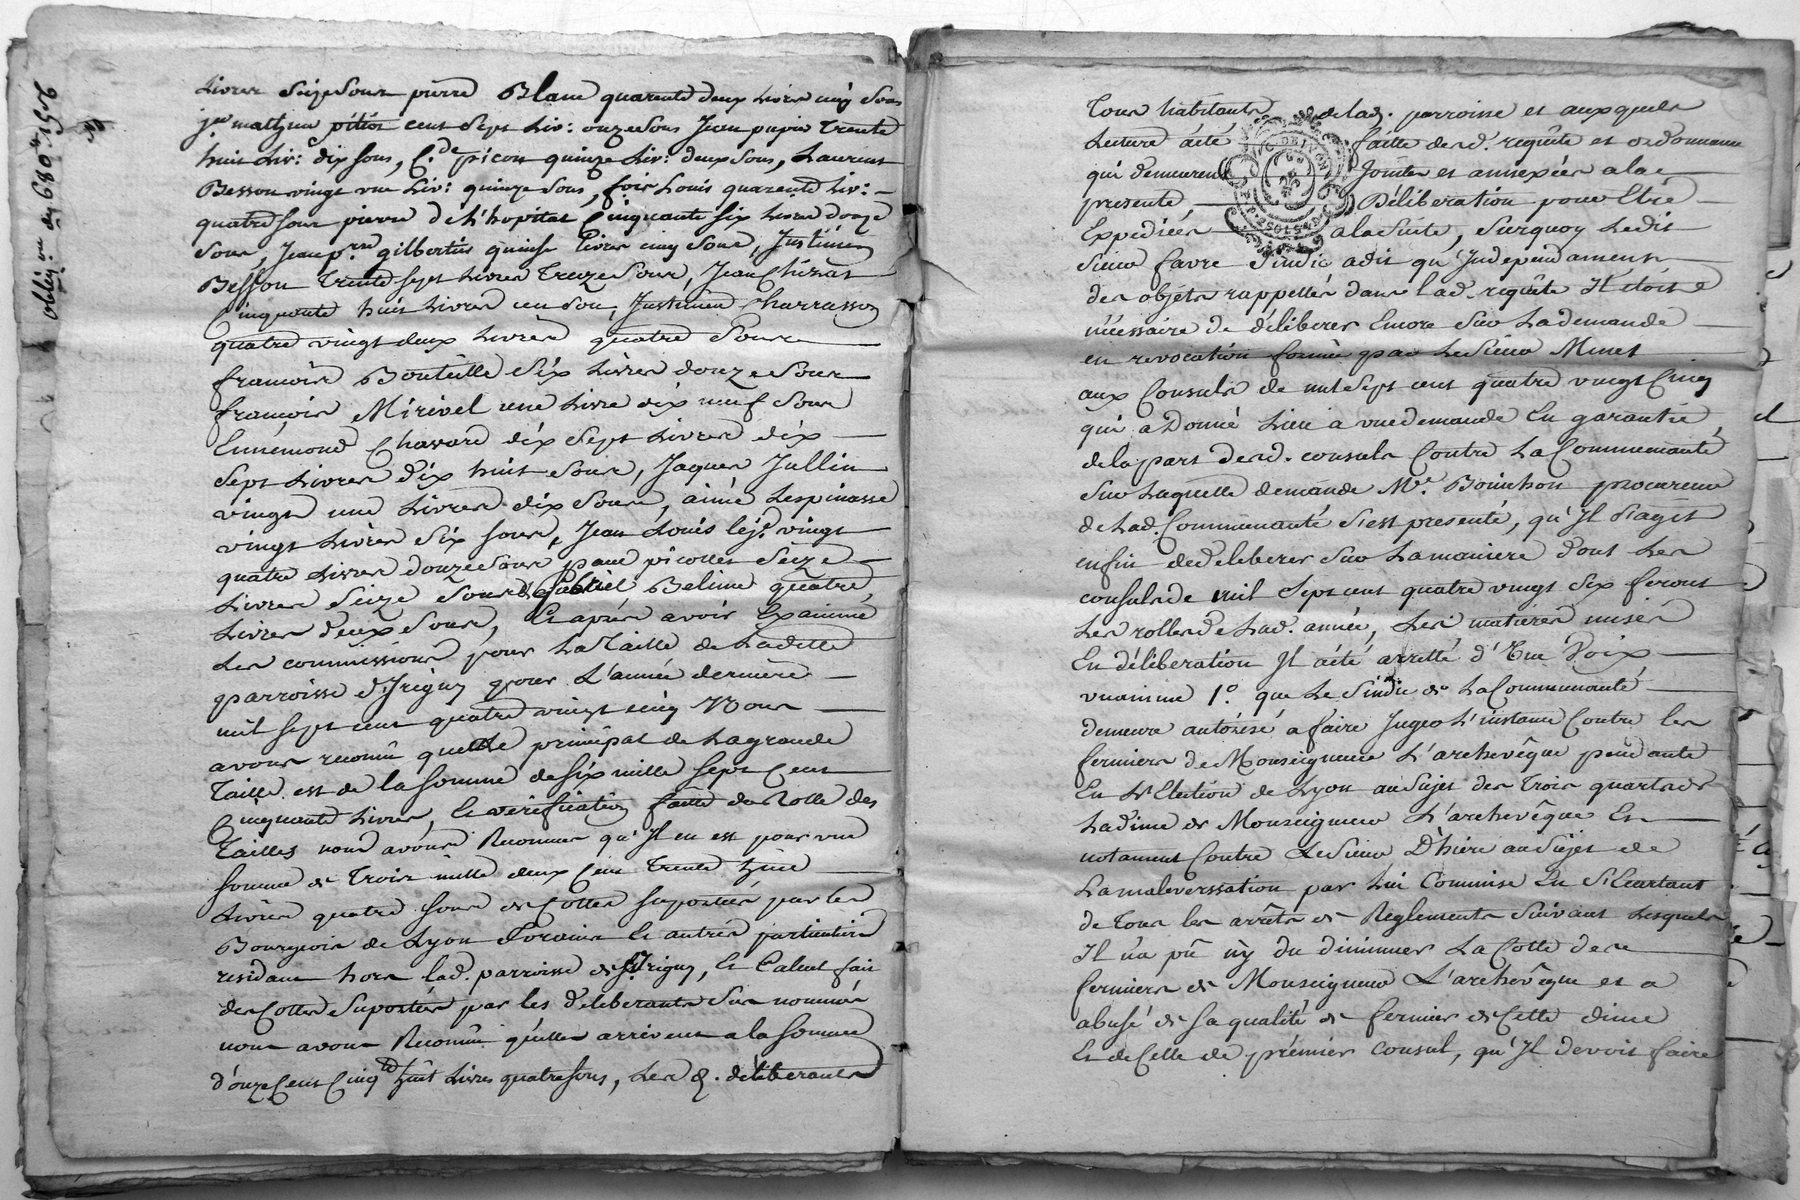 Livres Seize Sous pierre Blanc quarente deux Livres cinq Sous
jn mathieu pitiot cent Sept Liv: onze Sous Jean papin Trente
huit Liv: dix sous, C.de picon quinze Liv: deux Sous, Laurens
Besson vingt une Liv: quinze Sous, foir Louis quarente Liv:
quatre Sous pierre de L'hopital Cinquante six Livres douze
Sous, Jean p.re gilbertus quinse Livres cinq Sous, Justinien
Besson Trente sept Livres Treize Sous, Jean Chizat
Cinquante huit Livres un Sou, Justinien Charrasson
quatre vingt deux Livres quatre Sous
francois Bouteille Six Livres douze Sous
francois Mirivel une Livre dix neuf Sous
Ennémond Chavard dix Sept Livres dix
Sept Livres dix huit Sous, Jaques Jullin
vingt une Livres dix Sous, aimé Lespinasse
vingt Livres Six sous, Jean Louis lejt. vingt
quatre Livres douze Sous paul picottet Seize
Livres Seize Sous & gabriel Beline quatre
Livres deux Sous, Et aprés avoir Examiné
Les commissions pour La Taille de Ladette
parroisse d'Irigny pour L'année derniere
mil sept cent quatre vingt cinq Nous
avons reconnû que Le principal de La grande
Taille est de la somme de six mille sept Cent
Cinquante Livres, Et verification faitte du Rolle des
Tailles nous avons Reconnu qu'Il en est pour une
somme de Trois mille deux Cent Trente huit
Livres quatre sous de Cottes suportées par les
Bourgeois de Lyon forains Et autres particuliers
residant hors lad. parroisse de st Irigny, Et Calcul fait
des Cottes Suportées par les déliberants Sus nommés
nous avons Reconnû quelles arrivent a la Somme
d'onze Cent Cinqte huit Livres quatre sous, Les d. déliberants
oblig.on du 680tt 15s 6d
Tous habitants de lad. parroisse et auxquels
Lecture a été faitte desd. requête et ordonnance
qui demeurent Jointes et annexées a la
presente Déliberation pour Etre
Expediées a la Suite, Surquoy Ledit
Sieur favre Sindic a dit qu'Independament
des objets rappellés dans lad. requête Il étoit
nécessaire de déliberer Encore Sur La demande
en revocation formée par Le Sieur Minet
aux Consuls de mil Sept cent quatre vingt Cinq
qui a Donné Lieu a une demande En garantie
de la part desd. consuls Contre La Communauté
Sur Laquelle demande Me. Bonichon procureur
de Lad. Communauté s'est presenté, qu'Il s'agit
enfin de déliberer Sur La maniere dont Les
consuls de mil Sept cent quatre vingt Six feront
Les rolles de Lad. année, Les matieres mises
En déliberation Il a été arretté d'Une Voix
unanime 1.o que Le Sindic de La Communauté
demeure autorisé a faire Juger L'instance Contre les
fermiers de Monseigneur L'archevêque pendante
En L'Election de Lyon au Sujet des Trois quarts de
La dime de Monseigneur L'archevêque Et
notament Contre Le Sieur D'hiere au Sujet de
La malverssation par Lui Commise En S'Ecartant
de Tous les arrêts et Reglements Suivant Lesquels
Il n'a pû ny du diminuer La Cotte des
fermiers de Monseigneur L'archevêque et a
abusé de sa qualité de fermier de Cette dime
Et de Celle de premier Consul, qu'Il devoit faire